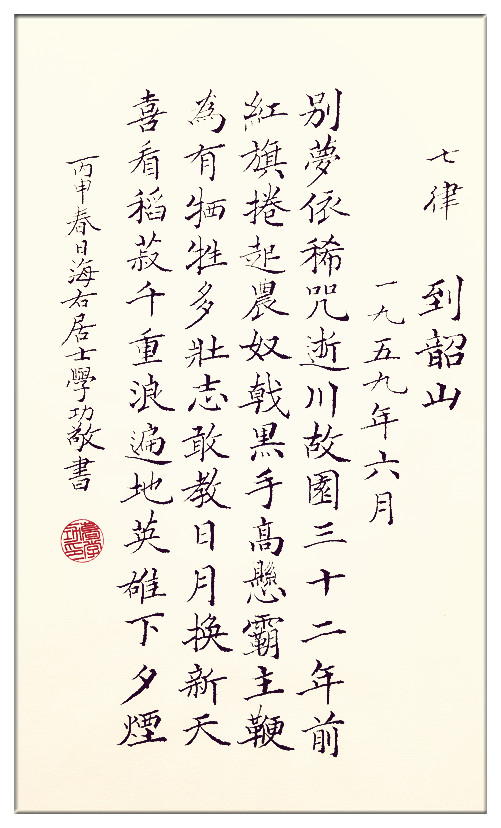 七律 到韶山
一九五九年六月
別夢依稀咒逝川故園三十二年前
紅旗捲起農奴戟黑手髙懸霸主鞭
為有牺牲多壯志敢教日月換新天
喜看稻菽千重浪遍地英雄下夕煙
丙申春日海右居士學功敬書